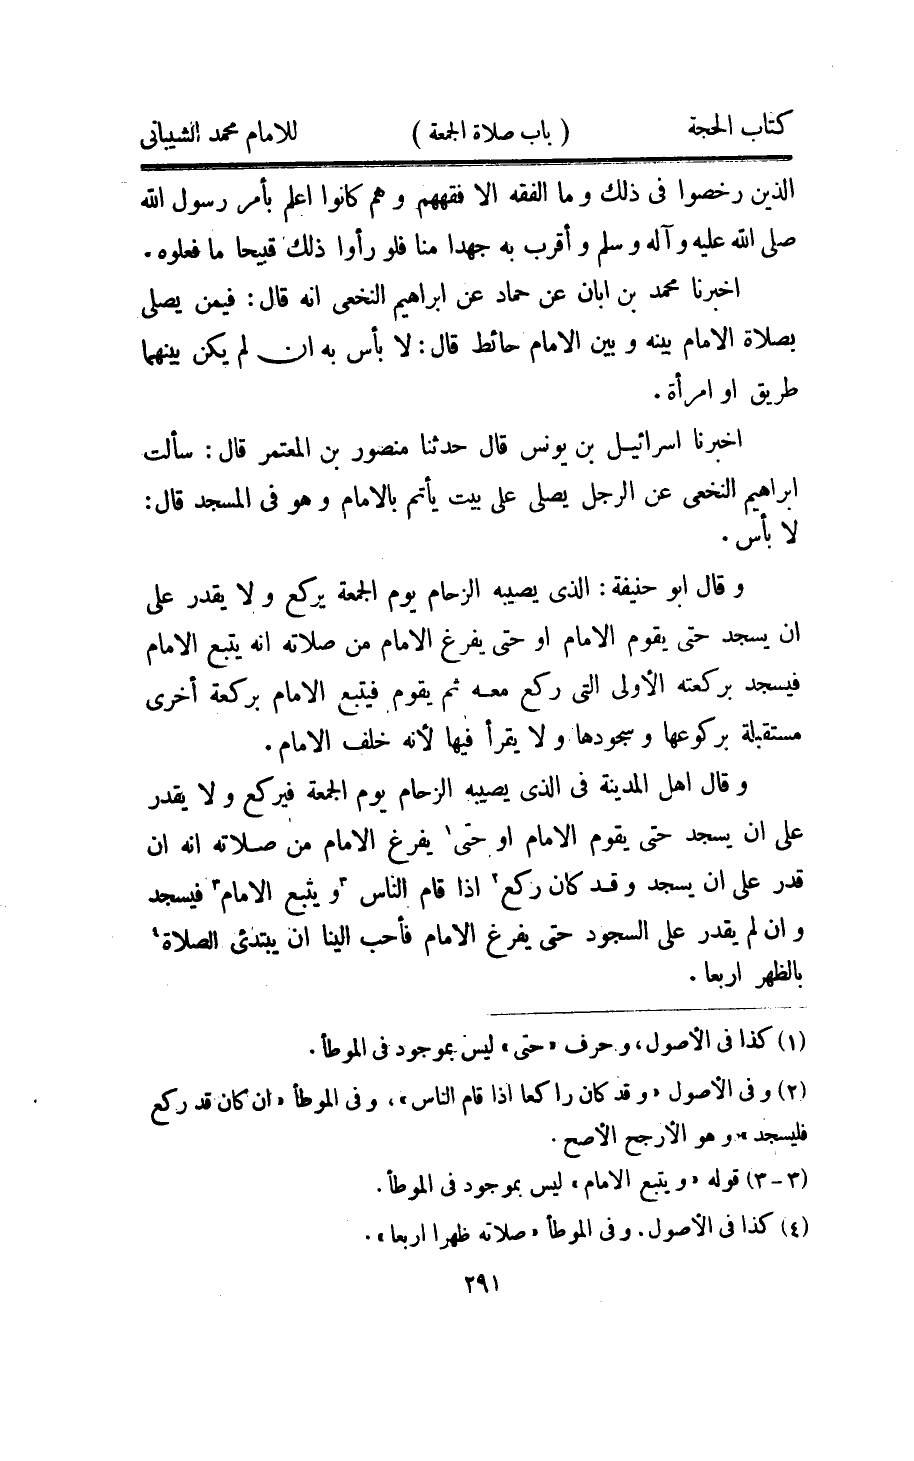 كتاب الحجة ( باب صلاة الجمعة ) للامام محمد الشيبانى
الذين رخصوا فى ذلك و ما الفقه الا فقههم و هم كانوا اعلم بأمر رسول الله
صلى الله عليه و آله و سلم و أقرب به جهدا منا فلو رأوا ذلك قبيحا ما فعلوه .
اخبرنا محمد بن ابان عن حماد عن ابراهيم النخعى انه قال : فيمن يصلى
بصلاة الامام بينه و بين الامام حائط قال : لا بأس به ان لم يكن بينهما
طريق او امرأة .
اخبرنا اسرائيل بن يونس قال حدثنا منصور بن المعتمر قال : سألت
ابراهيم النخعى عن الرجل يصلى على بيت يأتم بالامام و هو فى المسجد قال :
لا بأس .
و قال ابو حنيفة : الذى يصيبه الزحام يوم الجمعة يركع و لا يقدر على
ان يسجد حتى يقوم الامام او حتى يفرغ الامام من صلاته انه يتبع الامام
فيسجد بركعته الأولى التى ركع معه ثم يقوم فيتبع الامام بركعة أخرى
مستقبلة بركوعها و سجودها و لا يقرأ فيها لأنه خلف الامام .
و قال اهل المدينة فى الذى يصيبه الزحام يوم الجمعة فيركع و لا يقدر
على ان يسجد حتى يقوم الامام او حتى١ يفرغ الامام من صلاته انه ان
قدر على ان يسجد و قد كان ركع٢ اذا قام الناس ٣و يتبع الامام٣ فيسجد
و ان لم يقدر على السجود حتى يفرغ الامام فأحب الينا ان يبتدئ الصلاة٤
بالظهر اربعا .
(١) كذا فى الأصول ، و حرف « حتى » ليس بموجود فى الموطأ .
(٢) و فى الأصول « و قد كان راكعا اذا قام الناس » ، و فى الموطأ « ان كان قد ركع
فليسجد » و هو الأرجح الأصح .
(٣-٣) قوله « و يتبع الامام » ليس بموجود فى الموطأ .
(٤) كذا فى الأصول . و فى الموطأ « صلاته ظهرا اربعا » .
٢٩١